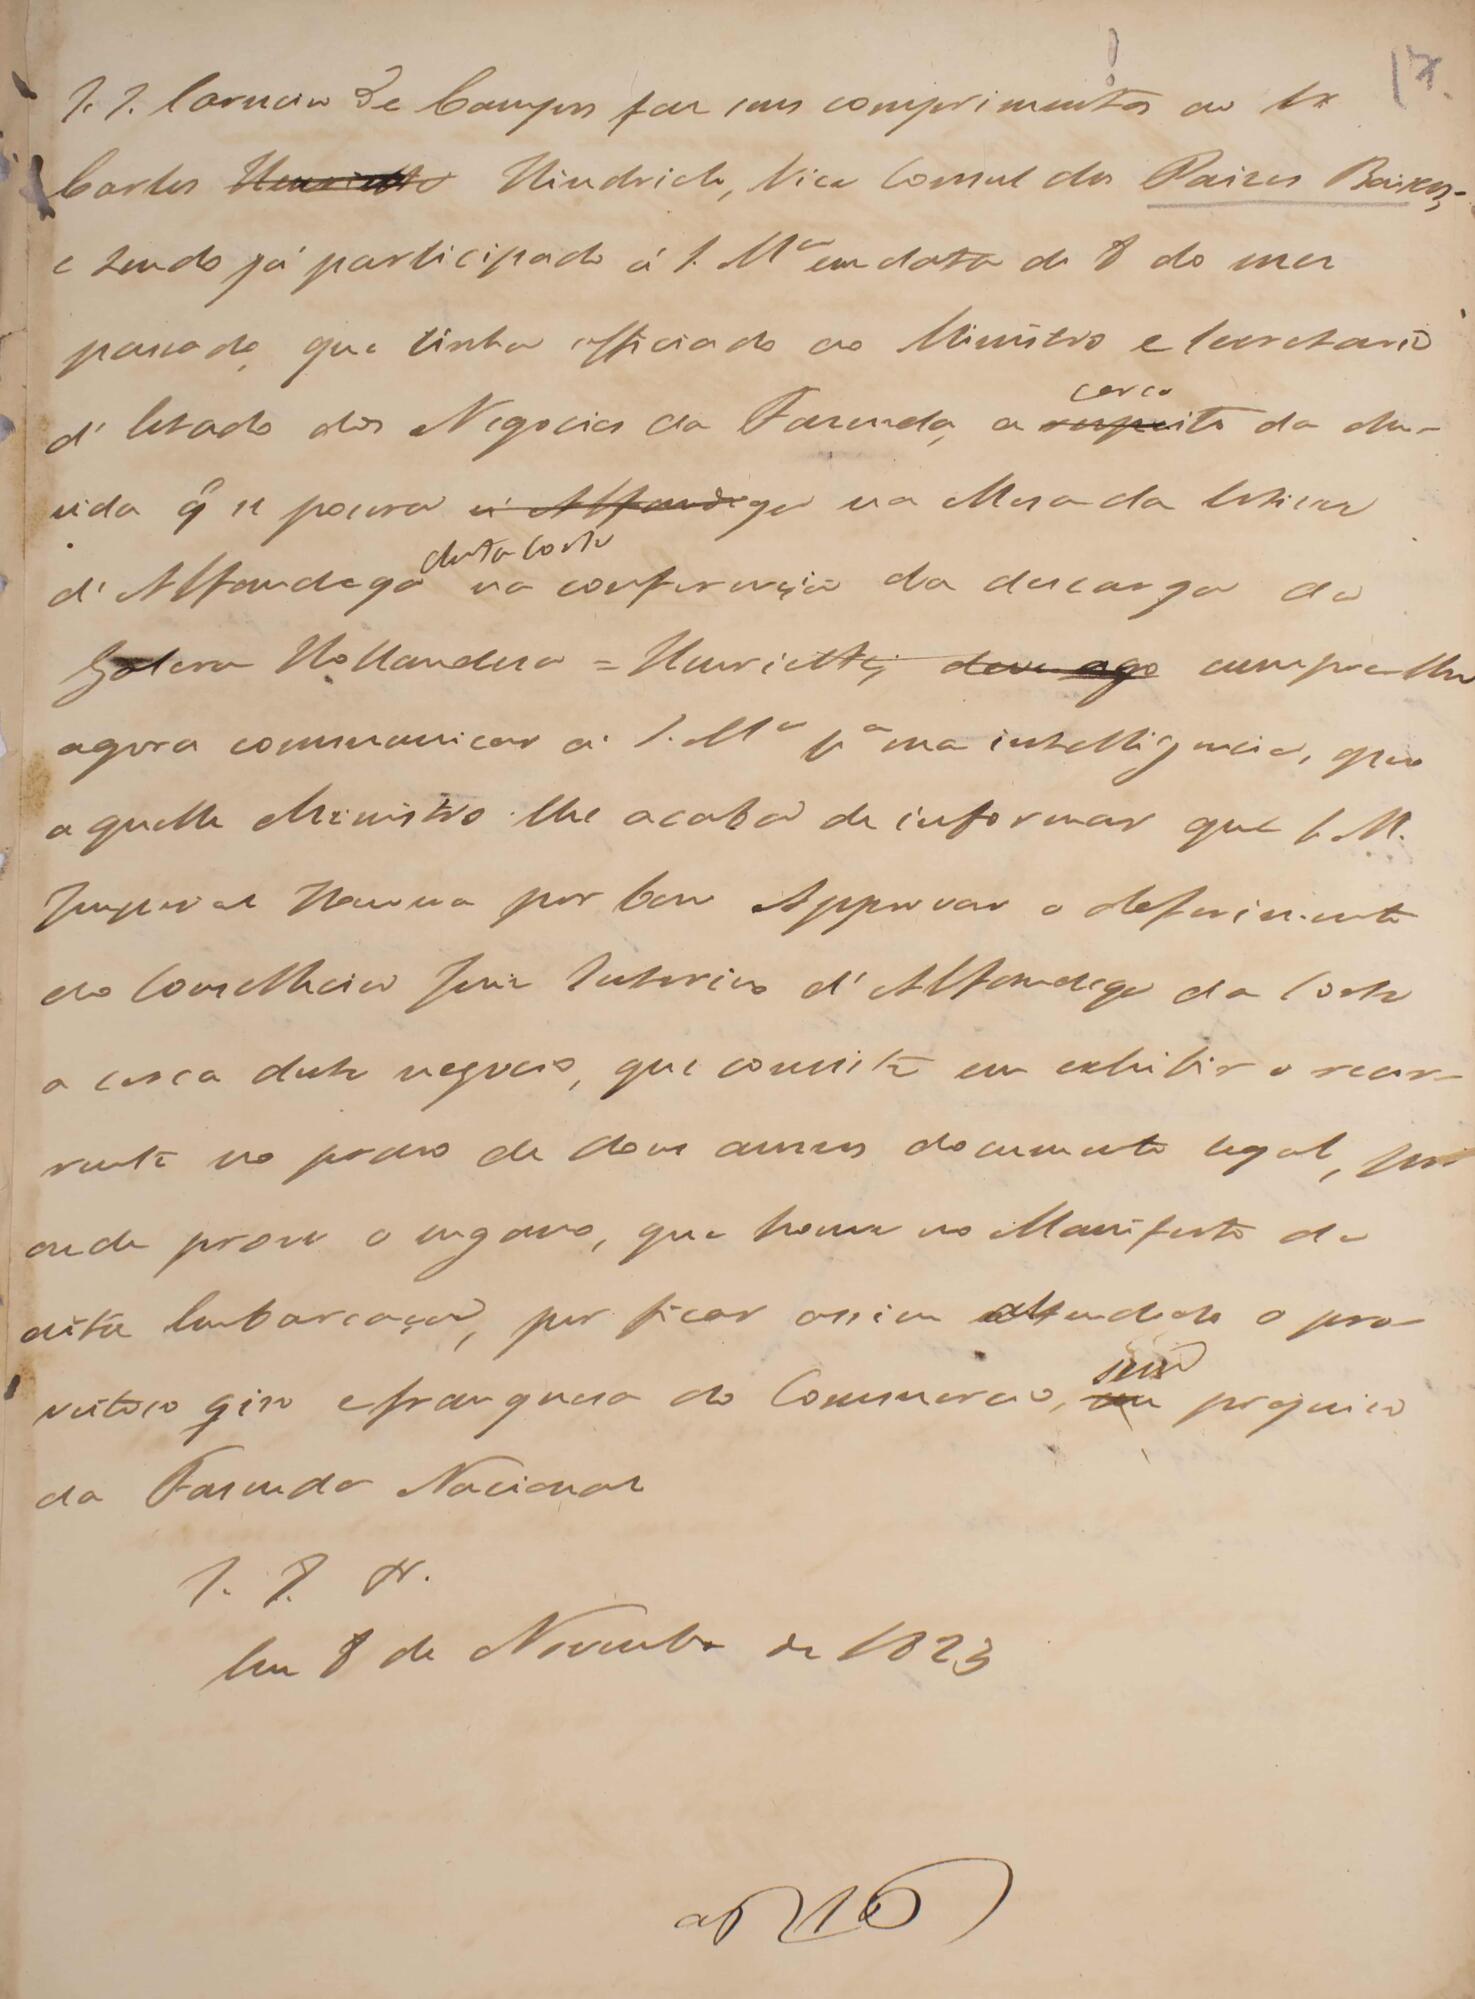 17.
J. J. Carneiro de Campos faz seus comprimentos ao Sr
Carlos Henriette Hindrich, Vice Consul dos Paizes Baixos,
e tendo já participado á S. Mce em data de 8 do mez
passado, que tinha officiado ao Ministro e Secretario
d'Estado dos Negocios da Fazenda, a respeito da du-
cerca
vida q̃ se poz na Mesa da Estiva
d'Alfandega na conferencia da descarga da
desta Corte
Galera Hollandesa = Henriette; cumpre-lhe
agora communicar á S. Mce pa sua intelligencia, que
aquelle Ministro lhe acaba de informar que S. M.
Imperial Houve por bem Approvar o deferimento
do Conselheiro Juiz Interino d'Alfandega da Corte
a cerca deste negocio, que consiste em exhibir o recor-
rente no prazo de dous annos documento legal, por
onde prove o engano, que houve no Manifesto da
dita Embarcação, por ficar assim attendido o pro-
veitoso giro e franqueza do Commercio, em prejuizo
sem
da Fazenda Nacional
Em 8 de Novembro de 1823